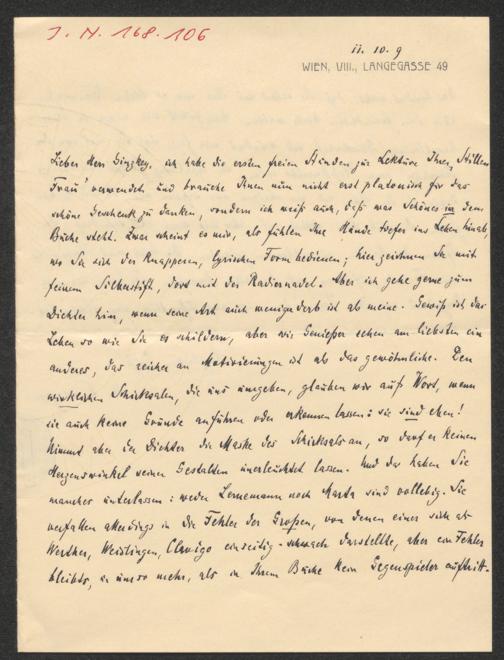 J. N. 168.106
11. 10. 9
WIEN, VIII., LANGEGASSE 49
Lieber Herr Ginzkey, ich habe die ersten freien Stunden zur Lektüre Ihrer „Stillen
Frau" verwendet und brauche Ihnen nun nicht erst platonisch für das
schöne Geschenk zu danken, sondern ich weiß auch, daß was Schönes in dem
Buche steht. Zwar scheint es mir, als fühlen Ihre Hände tiefer ins Leben hinab,
wo Sie sich der knapperen, lyrischen Form bedienen; hier zeichnen Sie mit
feinem Silberstift, dort mit der Radiernadel. Aber ich gehe gerne zum
Dichter hin, wenn seine Art auch weniger derb ist als meine. Gewiß ist das
Leben so wie Sie es schildern, aber wir Genießer sehen am liebsten ein
anderes, das reicher an Motivierungen ist als das gewöhnliche. Den
wirklichen Schicksalen, die uns umgeben, glauben wir aufs Wort, wenn
sie auch keine Gründe anführen oder erkennen lassen: sie sind eben!
Nimmt aber der Dichter die Maske des Schicksals an, so darf er keinen
Herzenswinkel seiner Gestalten unerleuchtet lassen. Und das haben Sie
mancher unterlassen: weder Lernemann noch Marta sind vollebig. Sie
verfallen allerdings in die Fehler der Großen, von denen einer sich als
Werther, Weislingen, Clavigo einseitig-schwach darstellte, aber ein Fehler
bleibts, umso mehr, als in Ihrem Buche kein Gegenspieler auftritt.